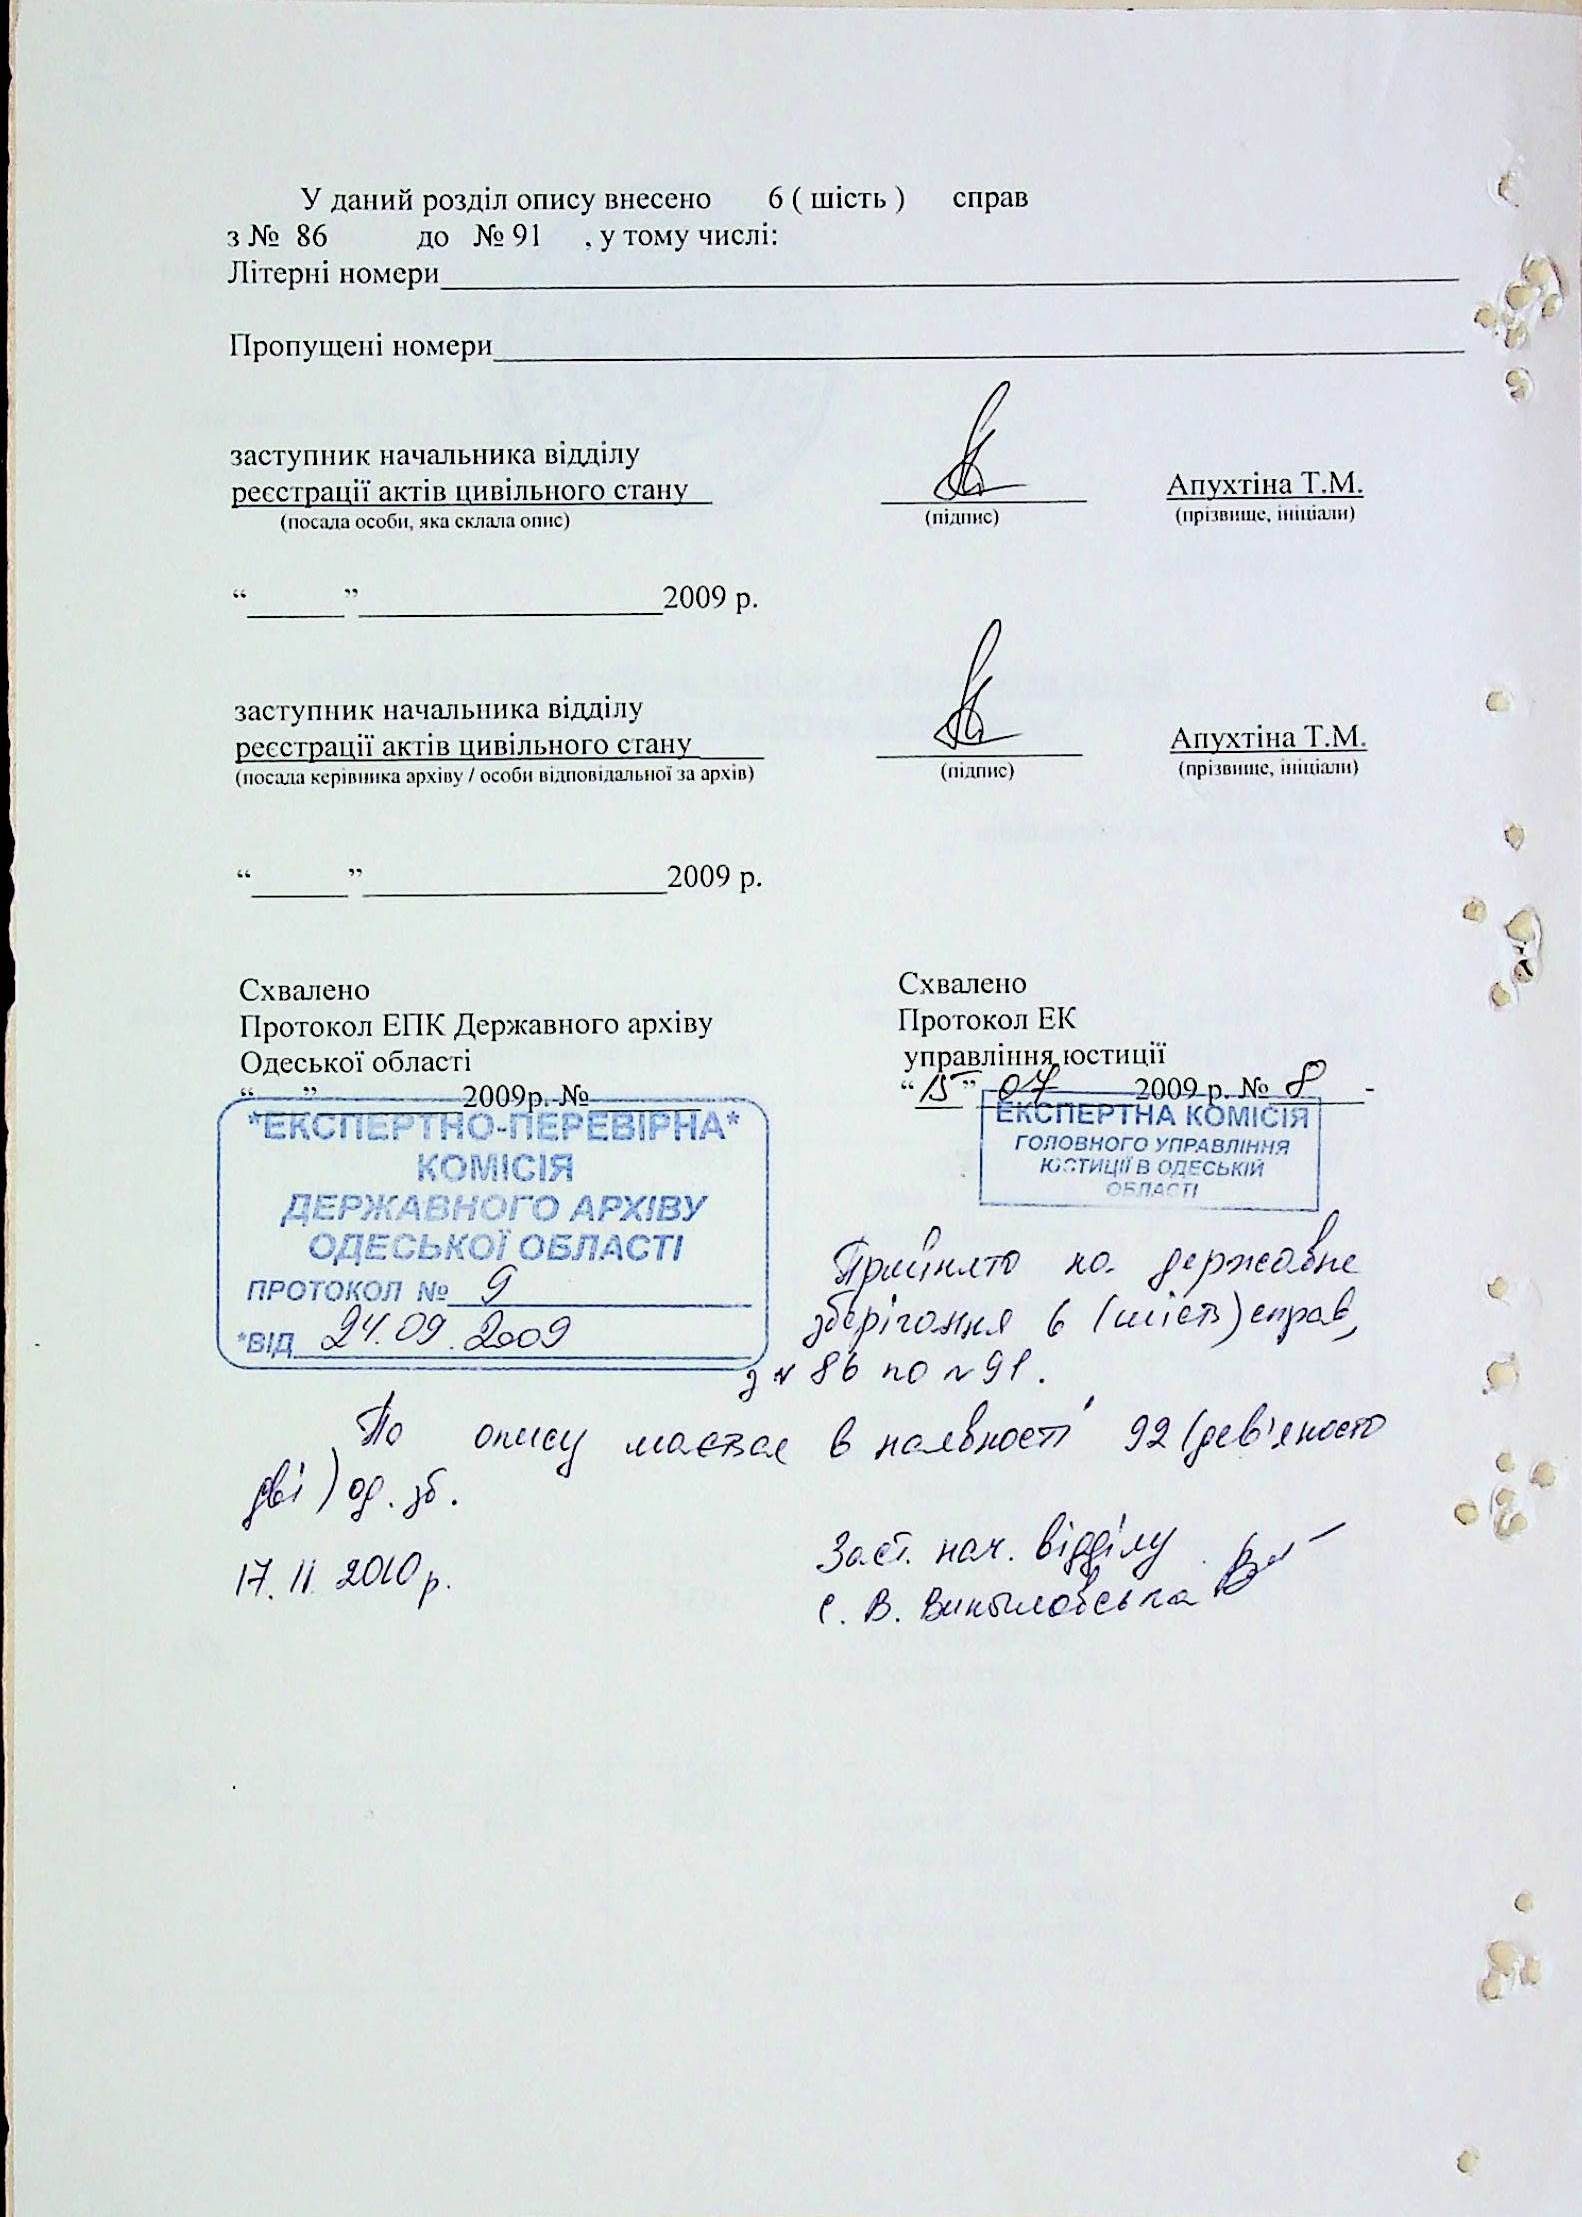 У даний розділ опису внесено 6 ( шість ) справ
з № 86 до № 91 , у тому числі:
Літерні номери
Пропущені номери
заступник начальника відділу
реєстрації актів цивільного стану
Апухтіна Т.М.
(посада особи, яка склала опис) (підпис) (прізвище, ініціали)
“ ” 2009 р.
заступник начальника відділу
реєстрації актів цивільного стану
Апухтіна Т.М.
(посада керівника архіву / особи відповідальної за архів) (підпис) (прізвище, ініціали)
“ ” 2009 р.
Схвалено
Протокол ЕПК Державного архіву
Одеської області
“ ” 2009р. №
*ЕКСПЕРТНО-ПЕРЕВІРНА*
КОМІСІЯ
ДЕРЖАВНОГО АРХІВУ
ОДЕСЬКОЇ ОБЛАСТІ
ПРОТОКОЛ № 9
*ВІД 24.09.2009
Схвалено
Протокол ЕК
управління юстиції
“ 15 ” 07 2009 р. № 8
ЕКСПЕРТНА КОМІСІЯ
ГОЛОВНОГО УПРАВЛІННЯ
ЮСТИЦІЇ В ОДЕСЬКІЙ
ОБЛАСТІ
Прийнято на державне
зберігання 6 (шість) справ,
з № 86 по № 91.
По опису має в наявності 92 (дев'яносто
дві) од. зб.
17.11.2010 р.
Заст. нач. відділу
С. В.